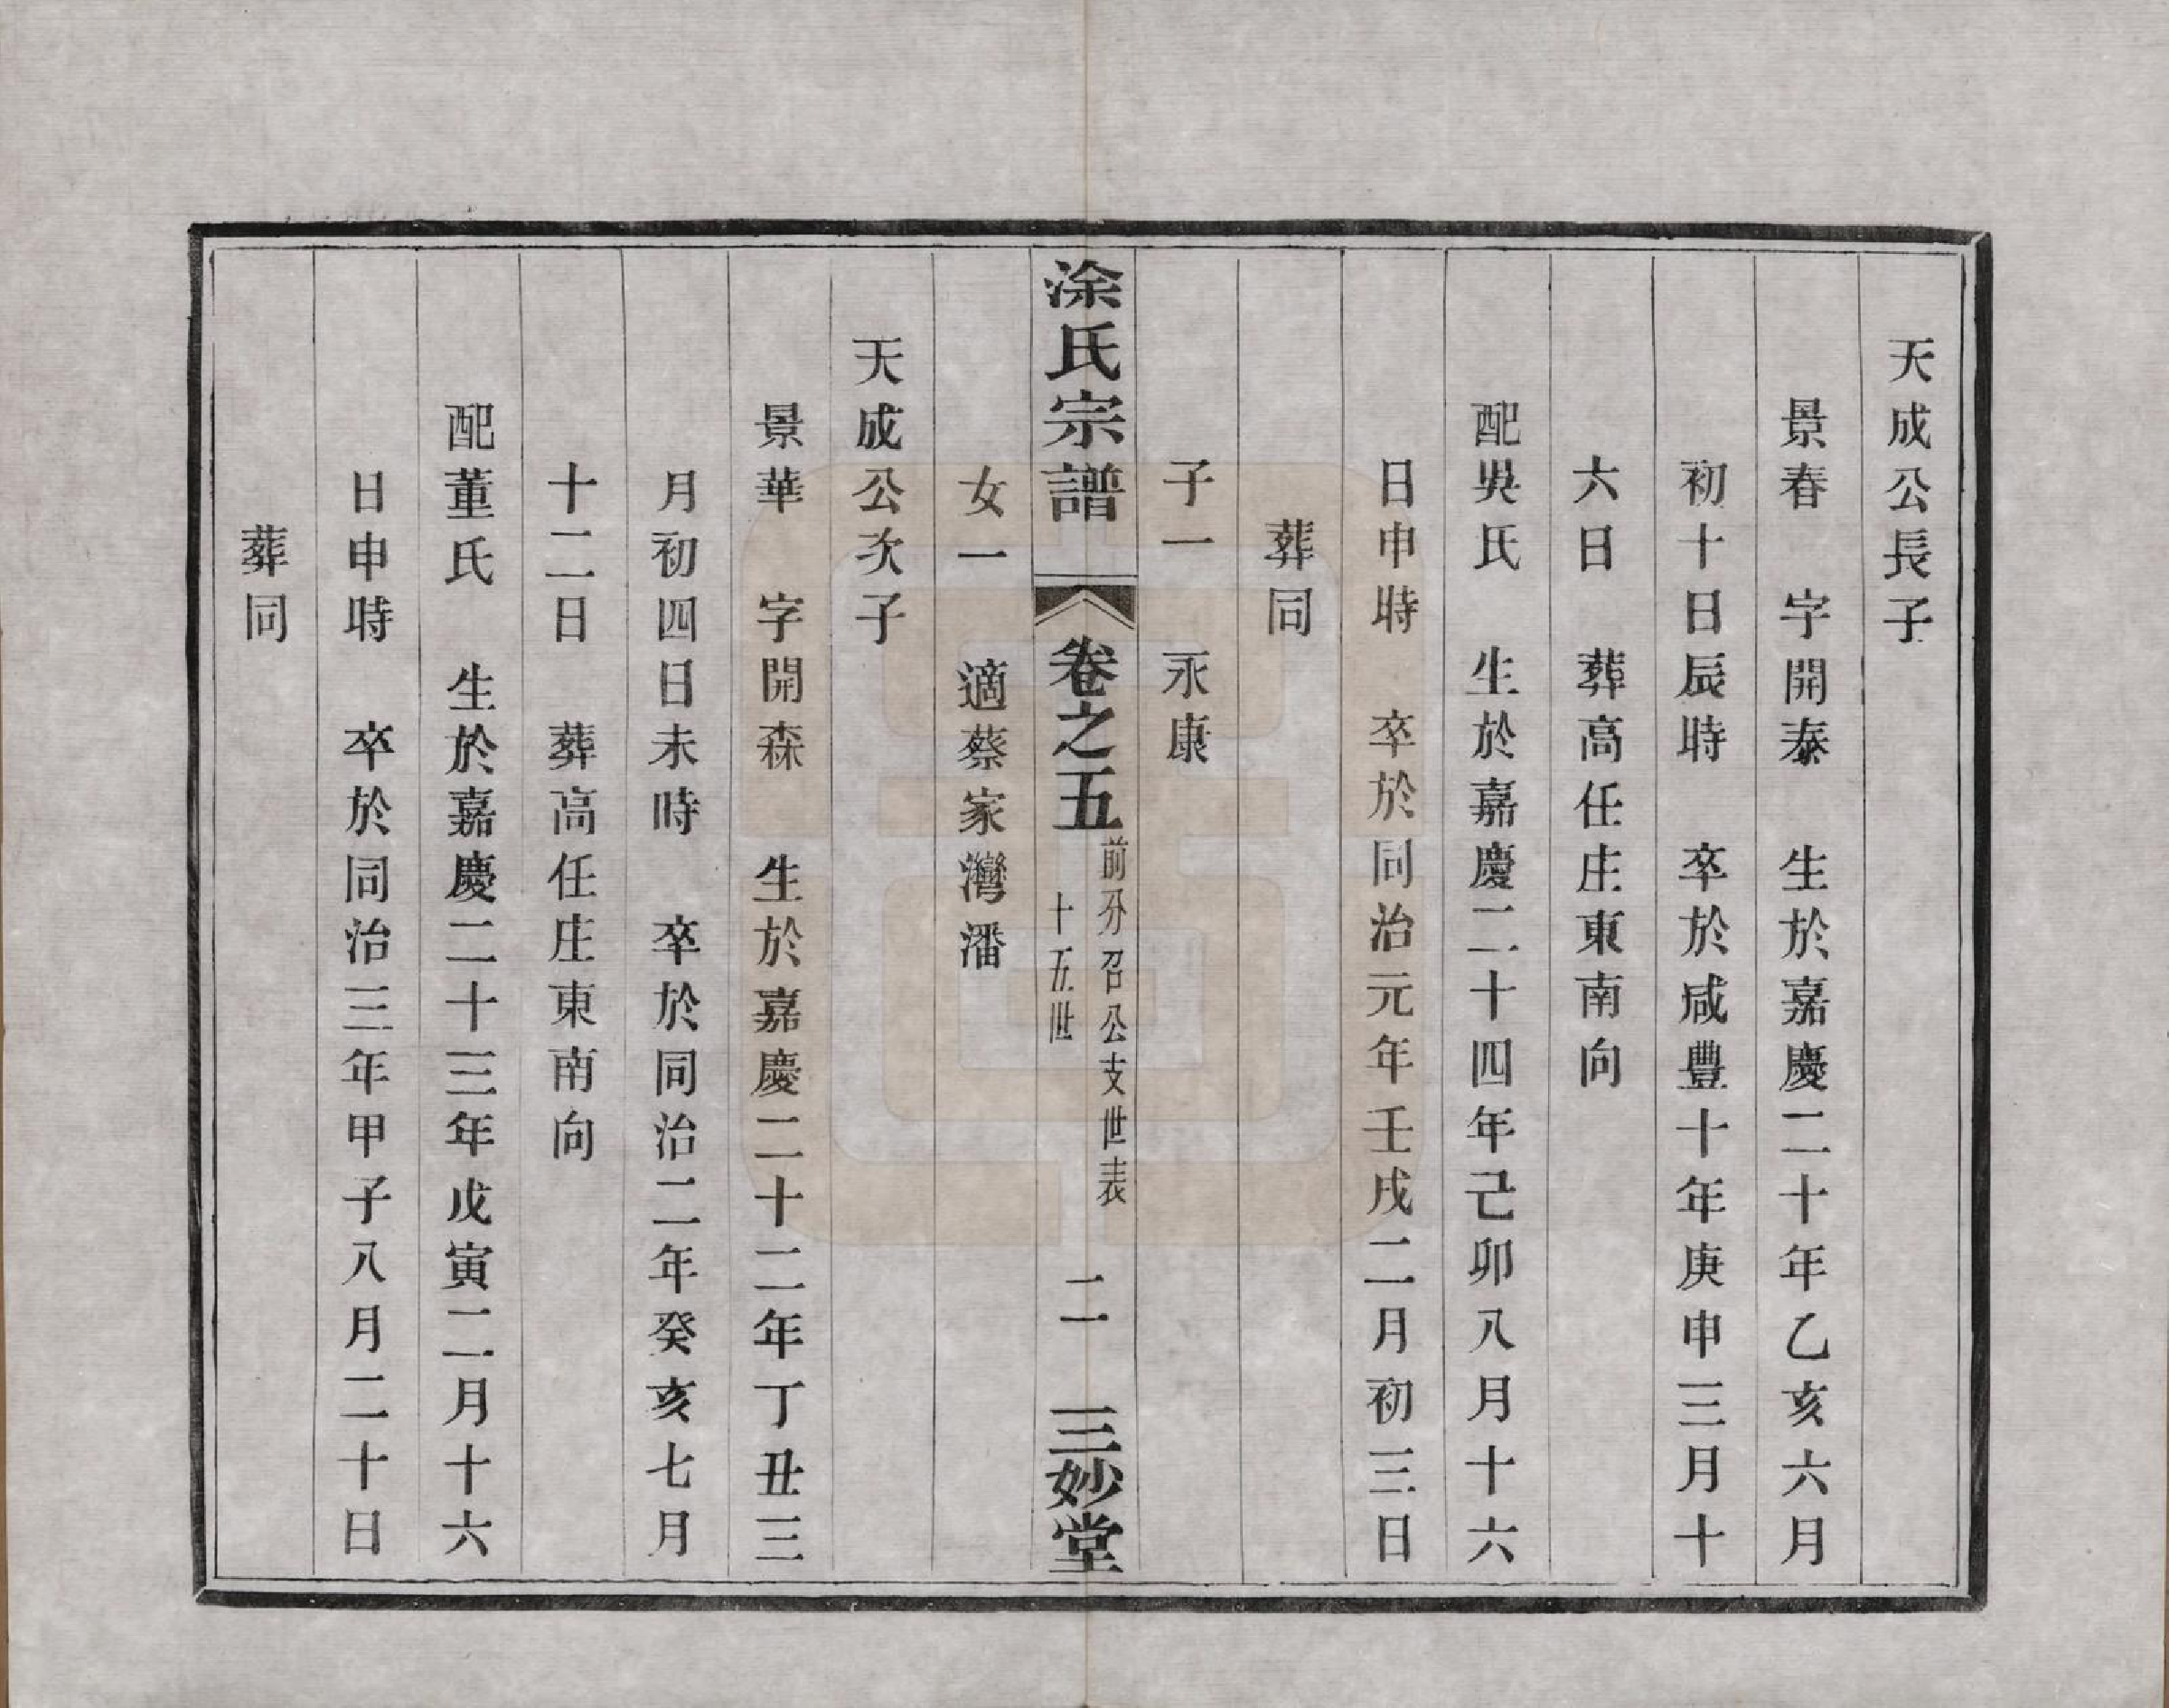 天成公長子
景春 字開泰 生於嘉慶二十年乙亥六月
初十日辰時 卒於咸豐十年庚申三月十
六日 葬高任庄東南向
配吳氏 生於嘉慶二十四年己卯八月十六
日申時 卒於同治元年壬戌二月初三日
葬同
子一 永康
涂氏宗譜 卷之五 前分召公支世表 十五世 二 三妙堂
女一 適蔡家灣潘
天成公次子
景華 字開森 生於嘉慶二十二年丁丑三
月初四日未時 卒於同治二年癸亥七月
十二日 葬高任庄東南向
配董氏 生於嘉慶二十三年戊寅二月十六
日申時 卒於同治三年甲子八月二十日
葬同